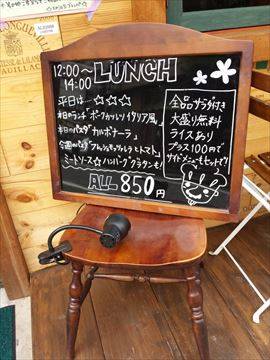 12:00〜 LUNCH
14:00
平日は…☆☆☆
本日のランチ「ポークカツレツイタリア風」
本日のパスタ「カルボナーラ」
今週のパスタ「アルトマト」
ミートソース☆ハンバーググラタンも!
ALL 850円
全品サラダ付き
大盛り無料
ライスあり
プラス100円で
サイドメニューもセットで!
PAUILLAC